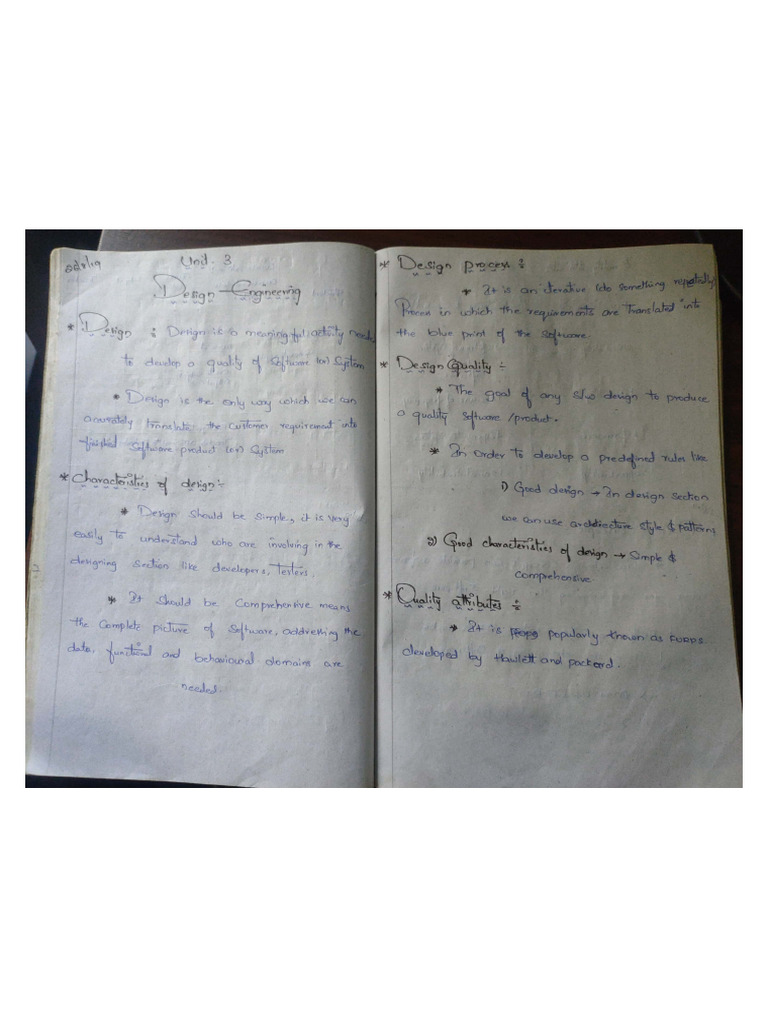 Unit - 3
Design Engineering
* Design : Design is a meaningful activity needs
to develop a quality of Software (or) System
* Design is the only way which we can
accurately translate the customer requirement into
finished Software product (or) System
* Characteristics of design :-
* Design should be simple, it is very
easily to understand who are involving in the
designing section like developers, Testers.
* It should be Comprehensive means
the Complete picture of Software, addressing the
data, functional and behavioural domains are
needed.
* Design process :
* It is an iterative (do something repeatedly)
Process in which the requirements are Translated "into
the blue print of the Software.
* Design Quality :-
* The goal of any s/w design to produce
a quality software /product.
* In order to develop a predefined rules like
1) Good design → In design section
we can use architecture style & patterns
2) Good characteristics of design → Simple &
comprehensive
* Quality attributes :
* It is popularly known as FURPS
developed by Hawlett and packerd.